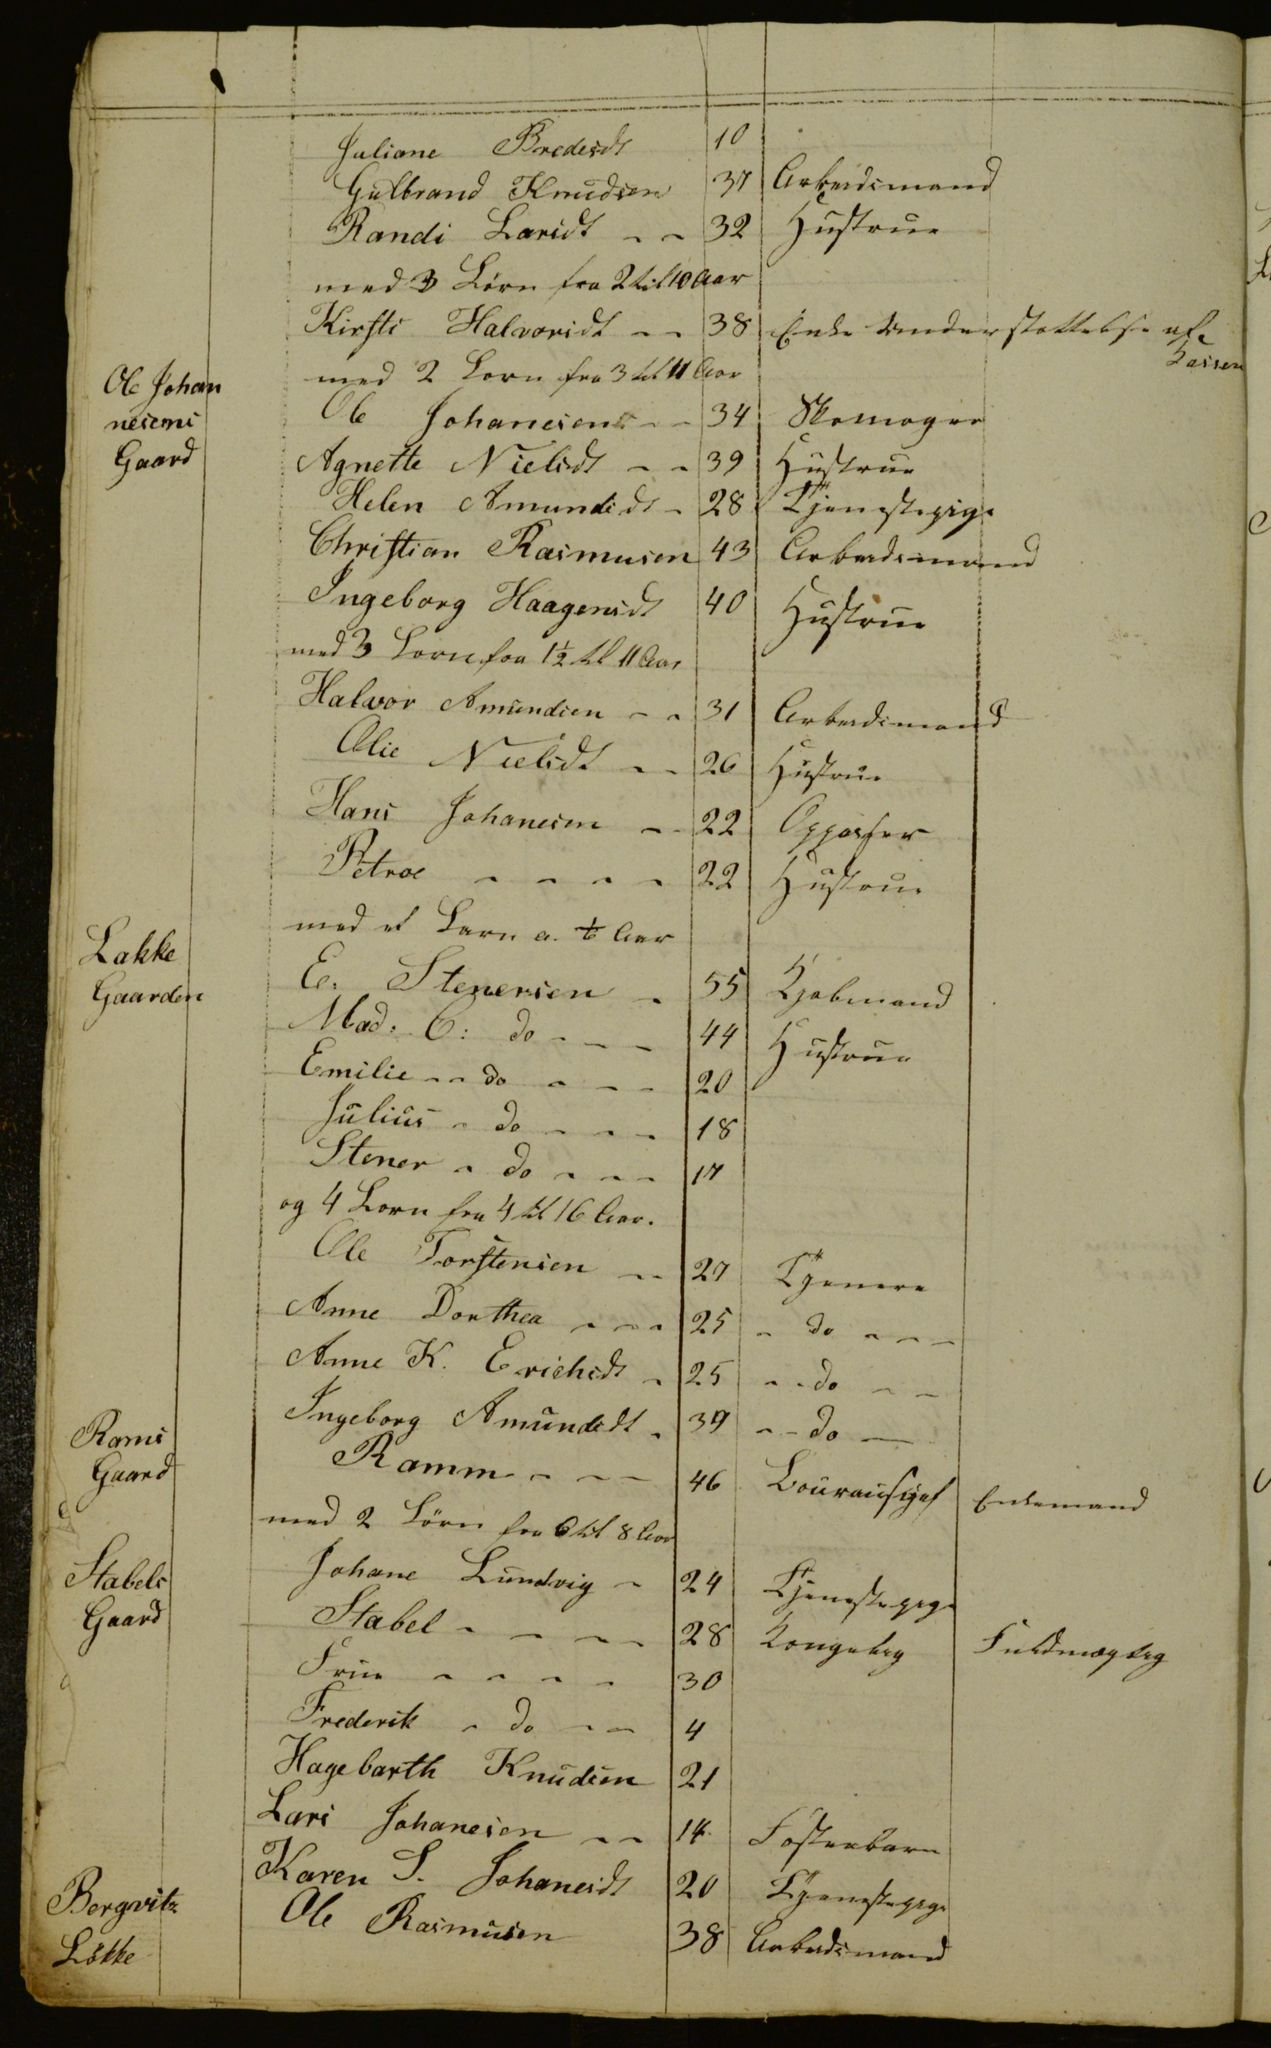 Juliane Bredesdt 10
Gulbrand Knudsen 37 Arbeidsmand
Randi Larsdt - - 32 Hustrue
med 3 Börn fra 2 til 10 Aar
Kirsti Halvorsdt - - 38 Enke Understøttelse af Kassen
med 2 Born fra 3 til 11 Aar
Ole Johan
nesens
Gaard
Ole Johanesen - - 34 Skomager
Agnette Nielsdt - - 39 Hustrue
Helen Amundsdt - 28 Tjenestepige
Christian Rasmusen 43 Arbeidsmand
Ingeborg Haagensdt 40 Hustrue
med 3 Born fra 1½ til 11 Aar
Halvor Amundsen - - 31 Arbeidsmand
Olie Nielsdt - - 26 Hustrue
Hans Johanesen - - 22 Oppasser
Petroe - - - - 22 Hustrue
med et Barn a. Aar
Lakke
Gaarden
E. Stenersen - 55 Kjøbmand
Mad. C: do - - - 44 Hustrue
Emilie - - do - - - 20
Julius - do - - - 18
Stener - do - - - 17
og 4 Born fra 4 til 16 Aar.
Ole Torstensen - - 27 Tjenere
Anne Dorthea - - - 25 - do - - -
Anne K. Erichsdt - 25 - - do - -
Ingeborg Amundsdt - 39 - - do -
Rams
Gaard
Ramm - - - 46 Enkemand
med 2 Börn fra 6 til 8 Aar
Stabels
Gaard
Johane Lundvig - 24 Tjenestepige
Stabel - - - - 28 Kongelig Fuldmægtig
Frue - - - - 30
Frederik - do - - 4
Hagebarth Knudsen 21
Lars Johanesen - - 14 Fosterbarn
Karen S. Johanesdt 20 Tjenestepige
Bergvitz
Løkke
Ole Rasmusen 38 Arbeidsmand